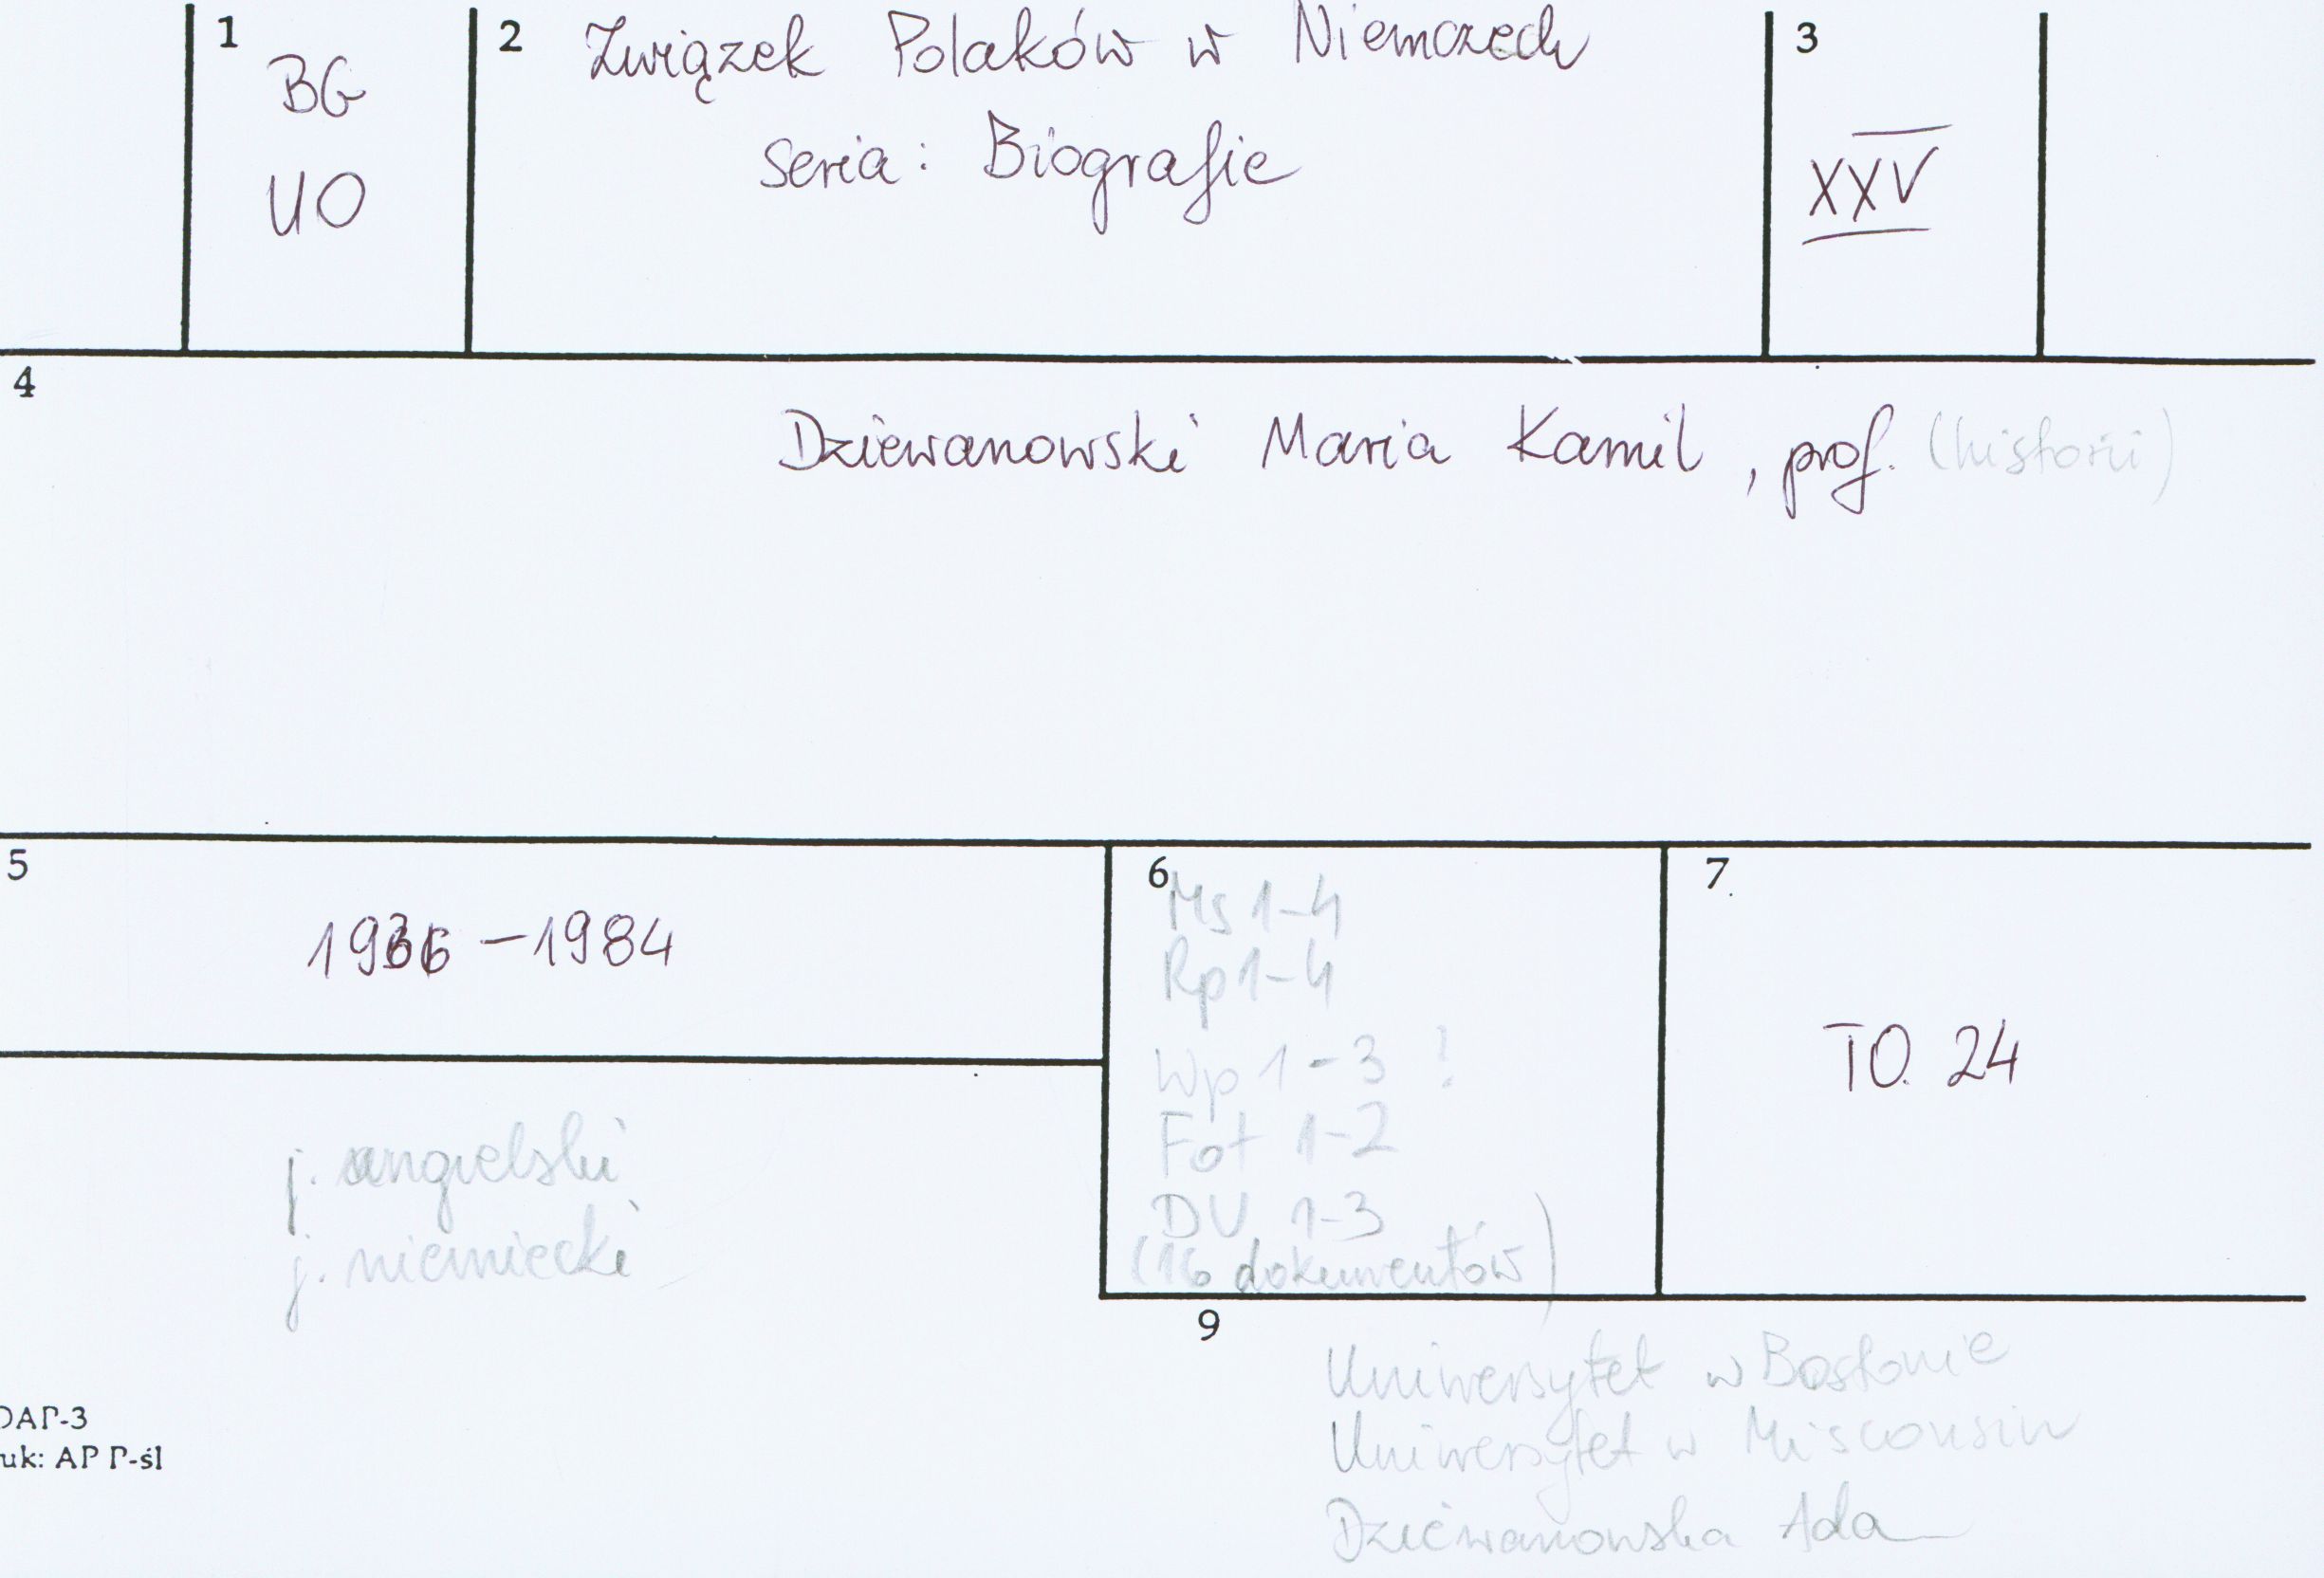 1
BG
UO
2
Związek Polaków w Niemczech
seria: Biografie
3
XXV
4
Dziewanowski Maria Kamil, prof. (historii)
5
1936 - 1984
j. angielski
j. niemiecki
6
Ms 1-4
Rp 1-4
Wp 1-3 !
Fot 1-2
DU 1-3
(16 dokumentów)
7
TO. 24
9
Uniwersytet w Bostonie
Uniwersytet w Misconsin
Dziewanowska Ada
DAP-3
uk: AP P-śl